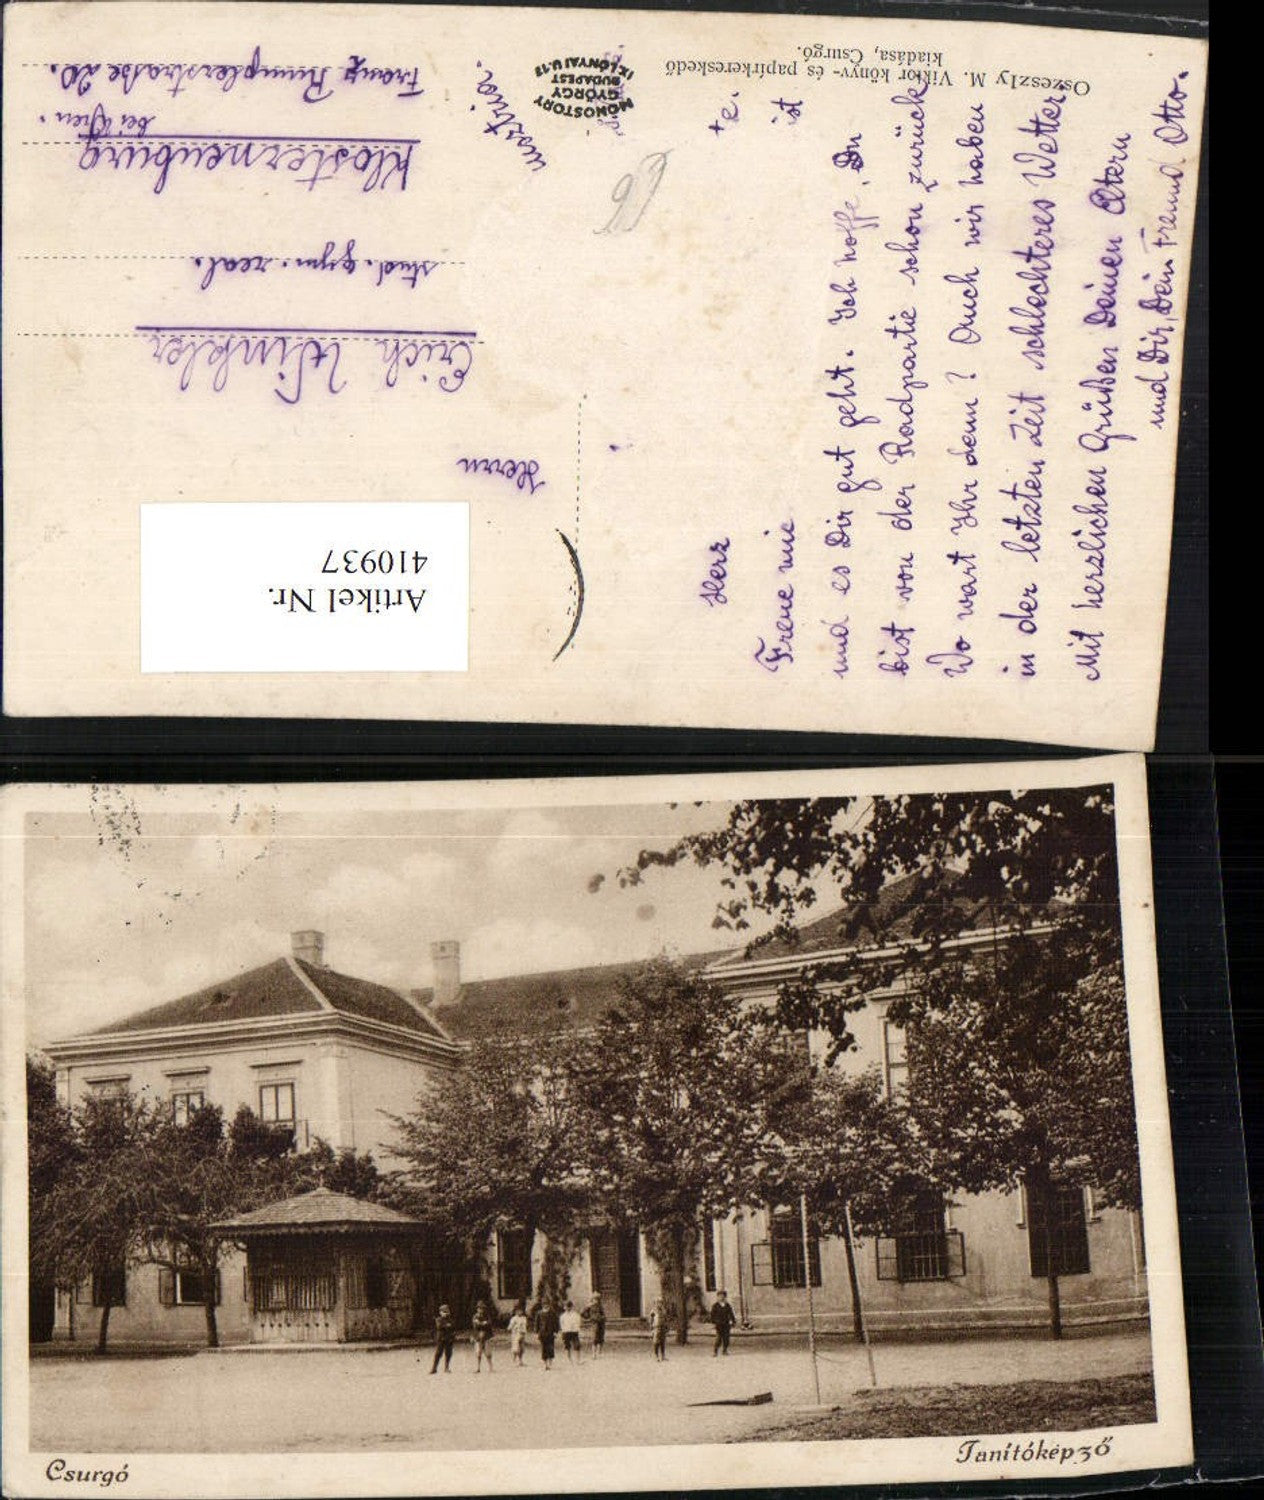 Oszeszly M. Viktor könyv- és papírkereskedő
kiadása, Csurgó.
Herz
te.
Freue mich
ist
und es Dir gut geht. Ich hoffe, Du
bist von der Radpartie schon zurück.
Wo wart Ihr denn? Auch wir haben
in der letzten Zeit schlechteres Wetter.
Mit herzlichen Grüßen Deinen Eltern
und Dir, Dein Freund Otto.
MONOSTORY
GYÖRGY
BUDAPEST
IX. LÓNYAI U. 13
Herrn
Erich Winkler
stud. gym. real.
Klosterneuburg
bei Wien.
Franz Rumplerstrasse 20.
Austria.
Artikel Nr.
410937
Csurgó
Tanítóképző